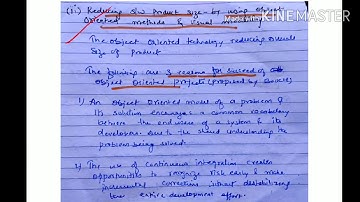 (ii) Reducing S/w Product size by using object
Oriented methods & visual
Made with KINEMASTER
The object Oriented technology reducing overall
size of product
The following are 3 reasons for succeed of
object Oriented projects (proposed by Booch)
1) An object Oriented model of a problem &
its solution encourages a common vocabulary
between the end users of a system & its
developers. the shared understanding the
problem being solved.
2) The use of continuous integration creates
opportunities to recognize risk early & make
incremental corrections without destabilizing
entire development effort.